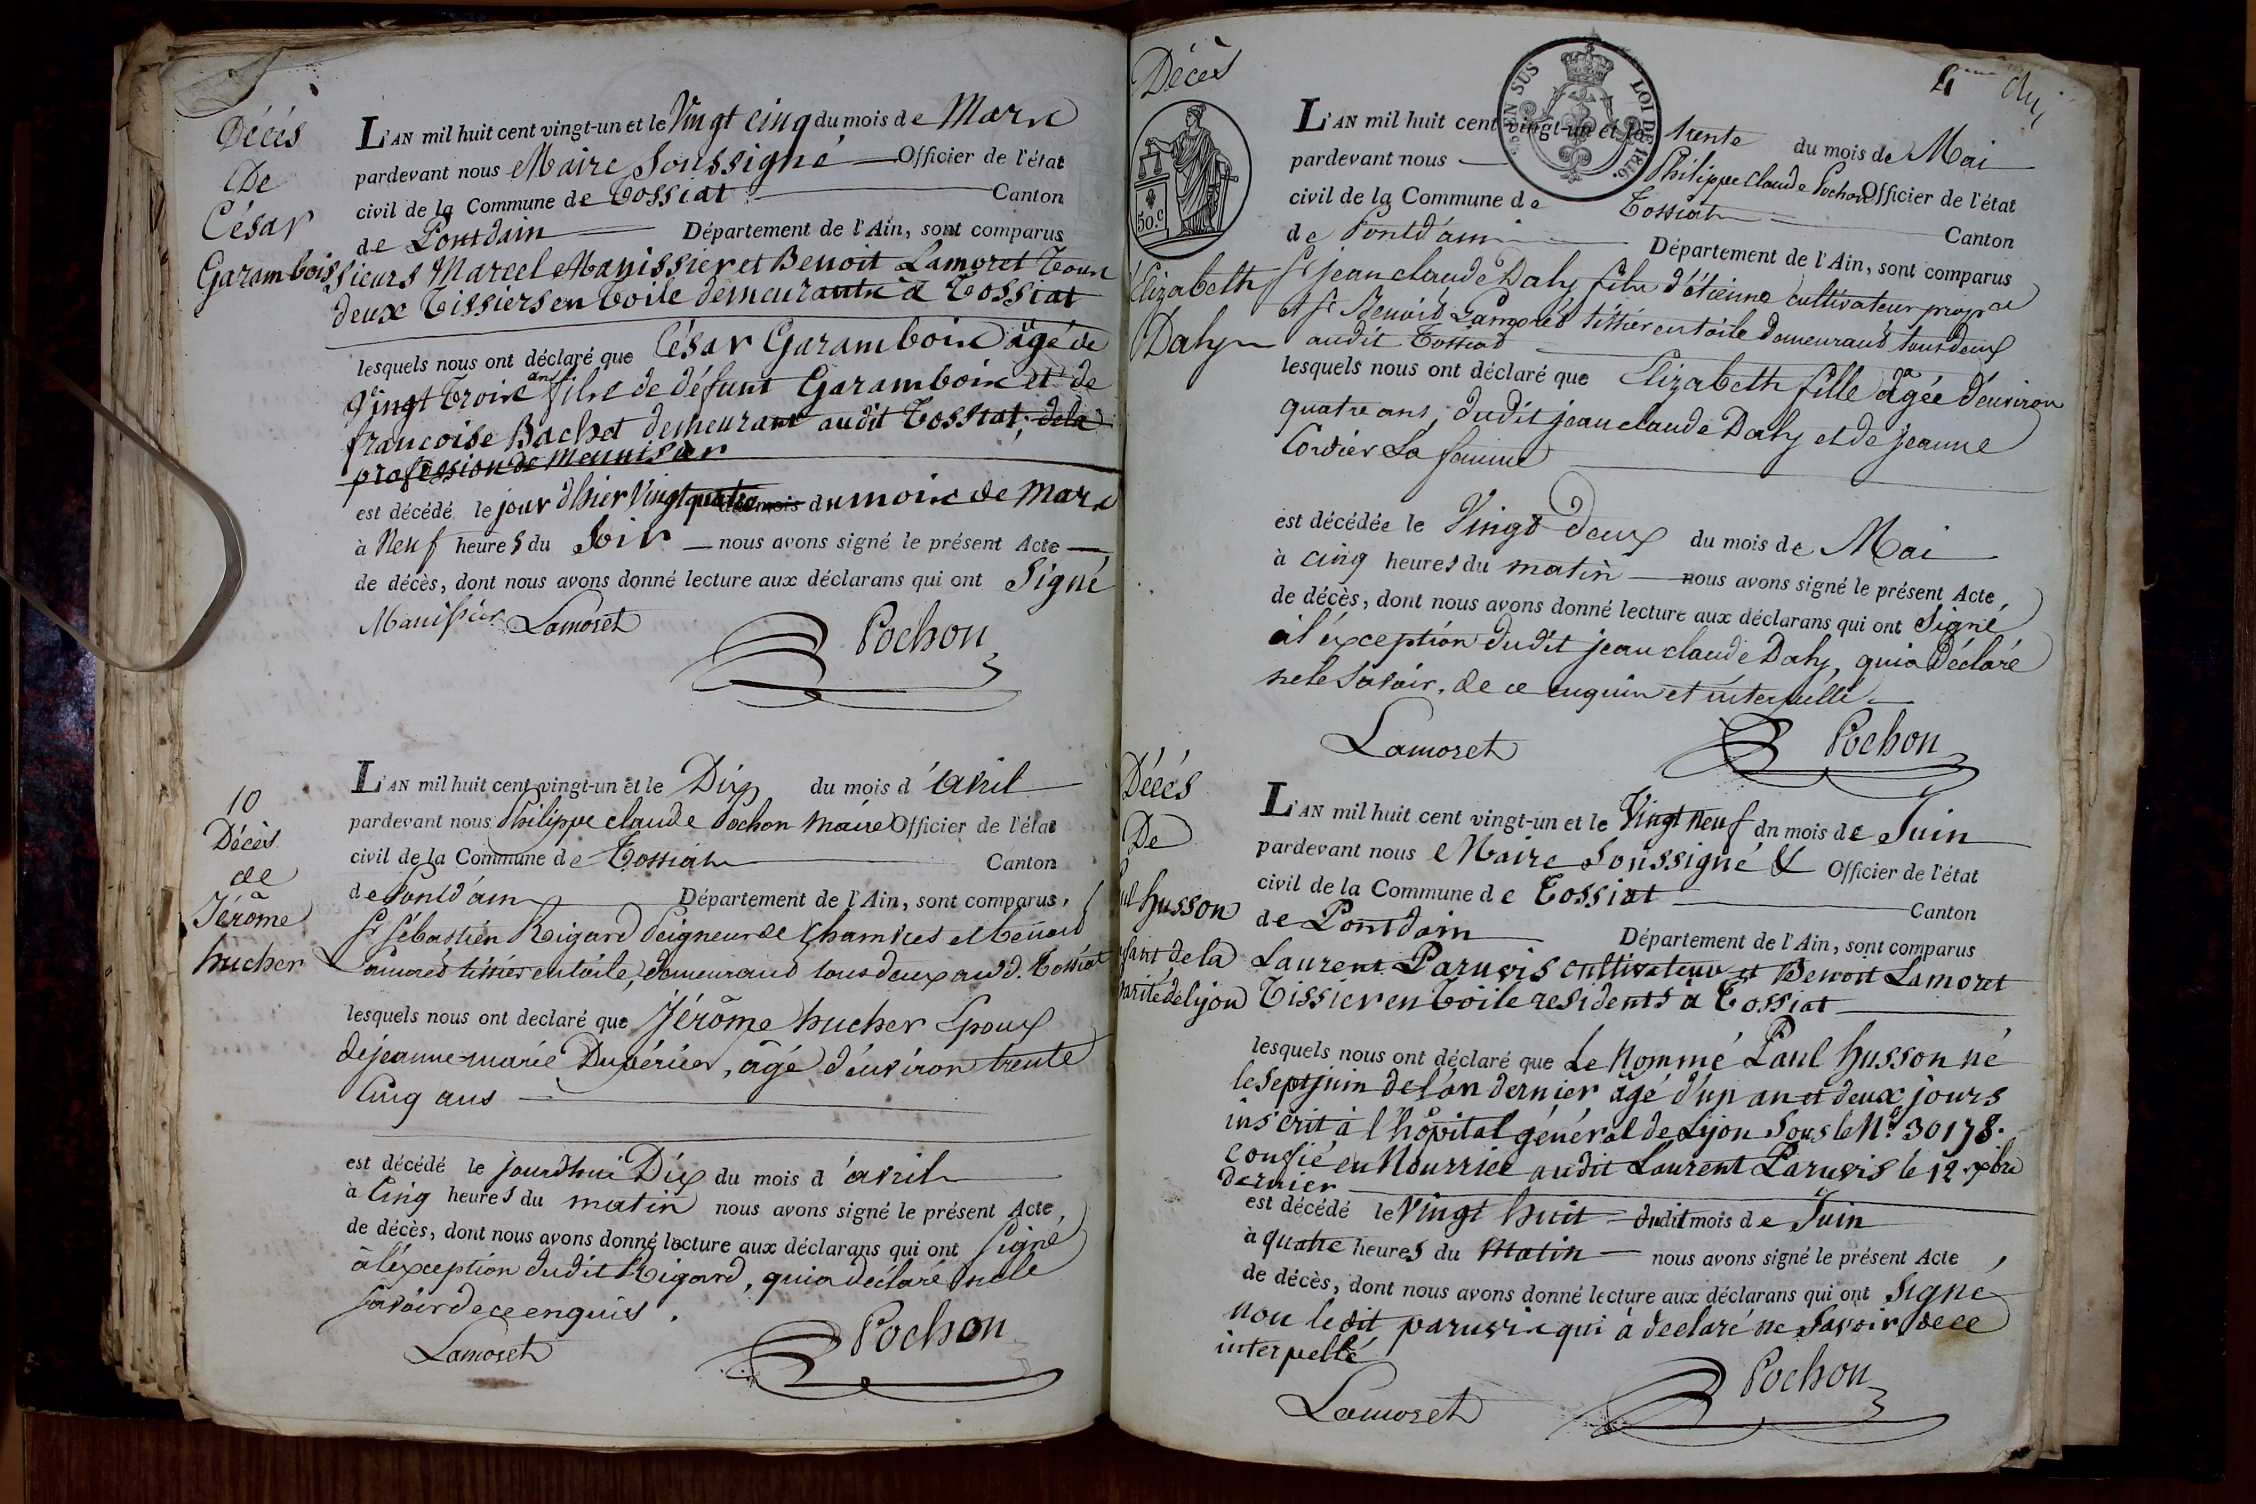 Décès
De
César
Garambois
L'AN mil huit cent vingt-un et le Vingt cinq du mois de Mars
pardevant nous Maire Soussigné Officier de l'état
civil de la Commune de Tossiat Canton
de Pontdain Département de l'Ain, sont comparus
sieurs Marcel Manissier et Benoit Lamoret Tous
deux Tissiers en Toile demeurants à Tossiat
lesquels nous ont déclaré que César Garambois âgé de
Vingt Trois ans fils de défunt Garambois et de
francoise Bachet demeurant audit Tossiat, dela
profession de Menuisier
est décédé le jour d'hier Vingt quatre du mois de Mars
à Neuf heures du Soir nous avons signé le présent Acte
de décès, dont nous avons donné lecture aux déclarans qui ont Signé
Manissier Lamoret
Pochon
10
Décès
de
Jérôme
hucher
L'AN mil huit cent vingt-un et le Dix du mois d'avril
pardevant nous Philippe claude Pochon Maire Officier de l'état
civil de la Commune de Tossiat Canton
de Pontd'ain Département de l'Ain, sont comparus,
Sr Sébastien Rigard Seigneur de et benoit
Lamoret tissier en toile, demeurans tous deux aud. Tossiat
lesquels nous ont declaré que Jérôme hucher Epoux
de jeanne-marie Dupérier, âgé d'environ trente
Cinq ans
est décédé le jourdhui Dix du mois d'avril
à Cinq heures du matin nous avons signé le présent Acte,
de décès, dont nous avons donné lecture aux déclarans qui ont Signé
à l'éxception dudit Rigard, qui a déclaré ne le
Savoir de ce enquis.
Lamoret
Pochon
Décès
Elizabeth
Daly
50 c.
EN SUS
LOI DE 1816.
4
L'AN mil huit cent vingt-un et le trente du mois de Mai
pardevant nous Philippe Claude Pochon Officier de l'état
civil de la Commune de Tossiat Canton
de Pontd'ain Département de l'Ain, sont comparus
Sr jean claude Daly fils d'étienne cultivateur propre
et Sr Benoit Lamoret tissier en toile demeurans tous deux
audit Tossiat
lesquels nous ont déclaré que Elizabeth fille âgée d'environ
quatre ans, dudit jean claude Daly et de jeanne
Cordier Sa famme
est décédée le Vingt Deux du mois de Mai
à cinq heures du matin nous avons signé le présent Acte,
de décès, dont nous avons donné lecture aux déclarans qui ont Signé
à l'éxception dudit jean claude Daly, qui a Déclaré
ne le Savoir, de ce enquis et interpellé
Lamoret
Pochon
Décès
De
husson
de la
de lyon
L'AN mil huit cent vingt-un et le Vingt Neuf du mois de Juin
pardevant nous Maire Soussigné & Officier de l'état
civil de la Commune de Tossiat Canton
de Pontdain Département de l'Ain, sont comparus
Laurent Paruvis cultivateur et Benoit Lamoret
Tissier en Toile residents à Tossiat
lesquels nous ont déclaré que Le Nommé Paul husson né
le Sept juin de l'an dernier âgé d'un an et deux jours
inscrit à l'hôpital général de Lyon Sous le No. 30178.
confié en Nourrice audit Laurent Paruvis le 12 xbre
dernier
est décédé le Vingt huit dudit mois de Juin
à quatre heures du Matin nous avons signé le présent Acte,
de décès, dont nous avons donné lecture aux déclarans qui ont Signé
non ledit paruvis qui à declaré ne Savoir de ce
interpellé
Lamoret
Pochon